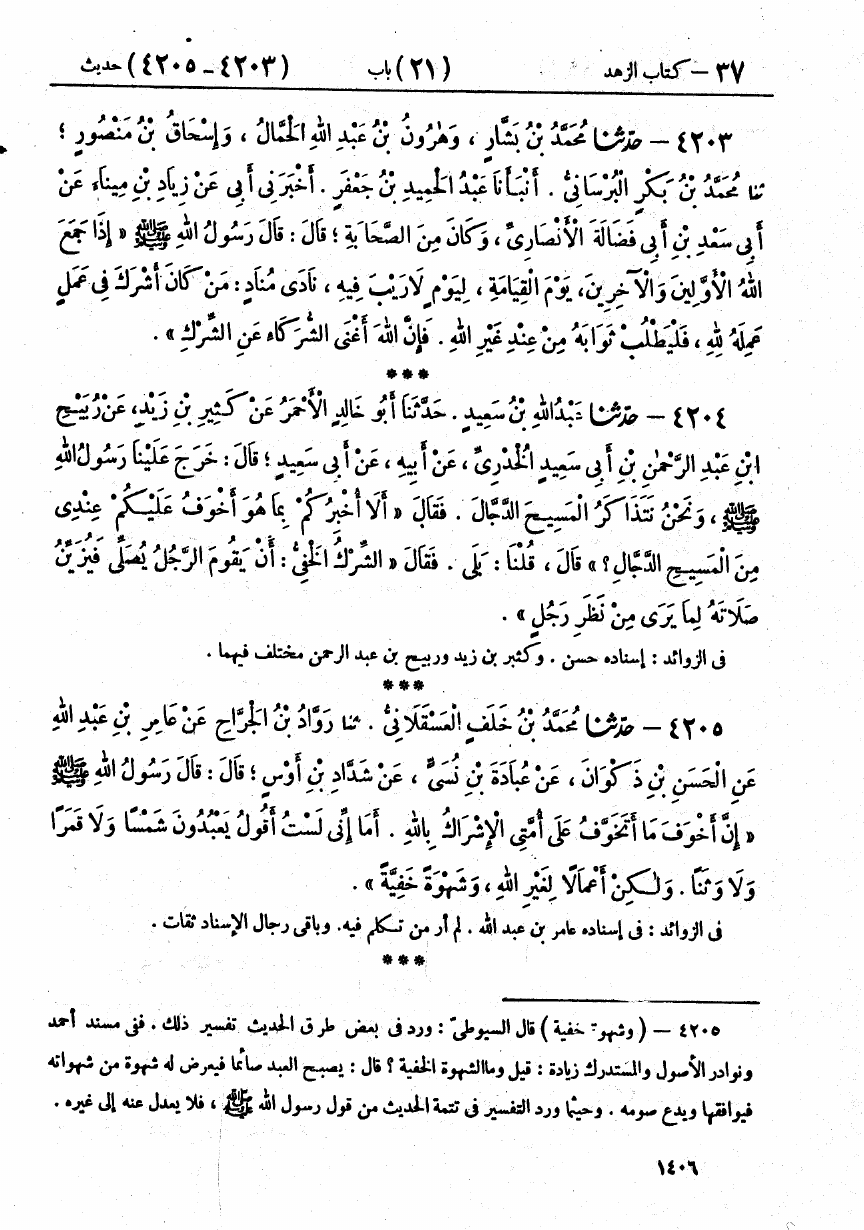 ٣٧ – كتاب الزهد (٢١) باب (٤٢٠٣ – ٤٢٠٥) حديث
٤٢٠٣ – حدّثنا مُحَمَّدُ بْنُ بَشَّارٍ ، وَهٰرُونُ بْنُ عَبْدِ اللهِ الْحَمَّالُ ، وَإِسْحَاقُ بْنُ مَنْصُورٍ ؛
ثنا مُحَمَّدُ بْنُ بَكْرٍ الْبُرْسَانِيُّ . أَنْبَأَنَا عَبْدُ الْحَمِيدِ بْنُ جَعْفَرٍ . أَخْبَرَنِى أَبِى عَنْ زِيَادِ بْنِ مِينَاءَ عَنْ
أَبِى سَعْدِ بْنِ أَبِى فَضَالَةَ الْأَنْصَارِىِّ ، وَكَانَ مِنَ الصَّحَابَةِ ؛ قَالَ : قَالَ رَسُولُ اللهِ ﷺ « إِذَا جَمَعَ
اللهُ الْأَوَّلِينَ وَالْآخِرِينَ، يَوْمَ الْقِيَامَةِ ، لِيَوْمٍ لَا رَيْبَ فِيهِ ، نَادَى مُنَادٍ : مَنْ كَانَ أَشْرَكَ فِى عَمَلٍ
عَمِلَهُ لِلهِ ، فَلْيَطْلُبْ ثَوَابَهُ مِنْ عِنْدِ غَيْرِ اللهِ . فَإِنَّ اللهَ أَغْنَى الشُّرَكَاءِ عَنِ الشِّرْكِ » .
***
٤٢٠٤ – حدّثنا عَبْدُ اللهِ بْنُ سَعِيدٍ . حَدَّثَنَا أَبُو خَالِدٍ الْأَحْمَرُ عَنْ كَثِيرِ بْنِ زَيْدٍ، عَنْ رُبَيْحِ
ابْنِ عَبْدِ الرَّحْمٰنِ بْنِ أَبِى سَعِيدٍ الْخُدْرِىِّ ، عَنْ أَبِيهِ ، عَنْ أَبِى سَعِيدٍ ؛ قَالَ : خَرَجَ عَلَيْنَا رَسُولُ اللهِ
ﷺ ، وَنَحْنُ نَتَذَاكَرُ الْمَسِيحَ الدَّجَّالَ . فَقَالَ « أَلَا أُخْبِرُكُمْ بِمَا هُوَ أَخْوَفُ عَلَيْكُمْ عِنْدِى
مِنَ الْمَسِيحِ الدَّجَّالِ ؟ » قَالَ ، قُلْنَا : بَلَى . فَقَالَ « الشِّرْكُ الْخَفِيُّ : أَنْ يَقُومَ الرَّجُلُ يُصَلِّى فَيُزَيِّنُ
صَلَاتَهُ لِمَا يَرَى مِنْ نَظَرِ رَجُلٍ » .
فى الزوائد : إسناده حسن . وكثير بن زيد وربيح بن عبد الرحمن مختلف فيهما .
***
٤٢٠٥ – حدّثنا مُحَمَّدُ بْنُ خَلَفٍ الْعَسْقَلَانِيُّ . ثنا رَوَّادُ بْنُ الْجَرَّاحِ عَنْ عَامِرِ بْنِ عَبْدِ اللهِ
عَنِ الْحَسَنِ بْنِ ذَكْوَانَ ، عَنْ عُبَادَةَ بْنِ نُسَىٍّ ، عَنْ شَدَّادِ بْنِ أَوْسٍ ؛ قَالَ : قَالَ رَسُولُ اللهِ ﷺ
« إِنَّ أَخْوَفَ مَا أَتَخَوَّفُ عَلَى أُمَّتِى الْإِشْرَاكُ بِاللهِ . أَمَا إِنِّى لَسْتُ أَقُولُ يَعْبُدُونَ شَمْسًا وَلَا قَمَرًا
وَلَا وَثَنًا . وَلٰكِنْ أَعْمَالًا لِغَيْرِ اللهِ ، وَشَهْوَةً خَفِيَّةً » .
فى الزوائد : فى إسناده عامر بن عبد الله . لم أر من تكلم فيه. وباقى رجال الإسناد ثقات .
***
٤٢٠٥ – ( وشهوة خفية ) قال السيوطىّ : ورد فى بعض طرق الحديث تفسير ذلك . ففى مسند أحمد
ونوادر الأصول والمستدرك زيادة : قيل وما الشهوة الخفية ؟ قال : يصبح العبد صائما فيعرض له شهوة من شهواته
فيوافقها ويدع صومه . وحيثما ورد التفسير فى تتمة الحديث من قول رسول الله ﷺ ، فلا يعدل عنه إلى غيره .
١٤٠٦